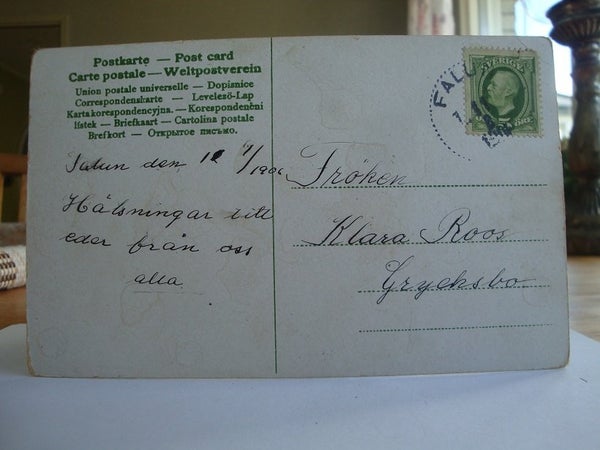 Postkarte — Post card
Carte postale — Weltpostverein
Union postale universelle — Dopisnice
Correspondenskarte — Levelező-Lap
Kartakorespondencyjna. — Korespondenční
lístek — Briefkaart — Cartolina postale
Brefkort — Открытое письмо.
Falun den
Hälsningar till
eder från oss
alla
SVERIGE
ÖRE
FALU
Fröken
Klara Roos
Grycksbo